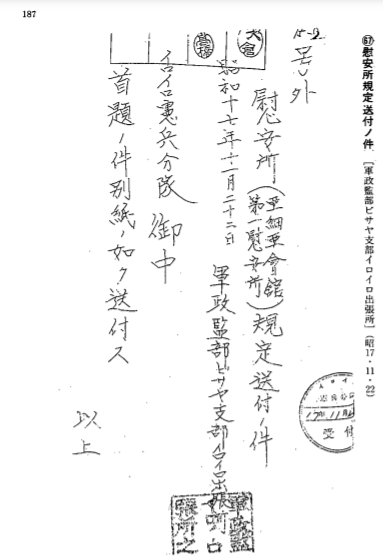 187
㊼慰安所規定送付ノ件〔軍政監部ビサヤ支部イロイロ出張所〕(昭17・11・22)
号外
慰安所(亜細亜会館 第一慰安所)規定送付ノ件
昭和十七年十一月二十二日
軍政監部ビサヤ支部イロイロ出張所
イロイロ憲兵分隊 御中
首題ノ件別紙ノ如ク送付ス
以上
大倉
受付